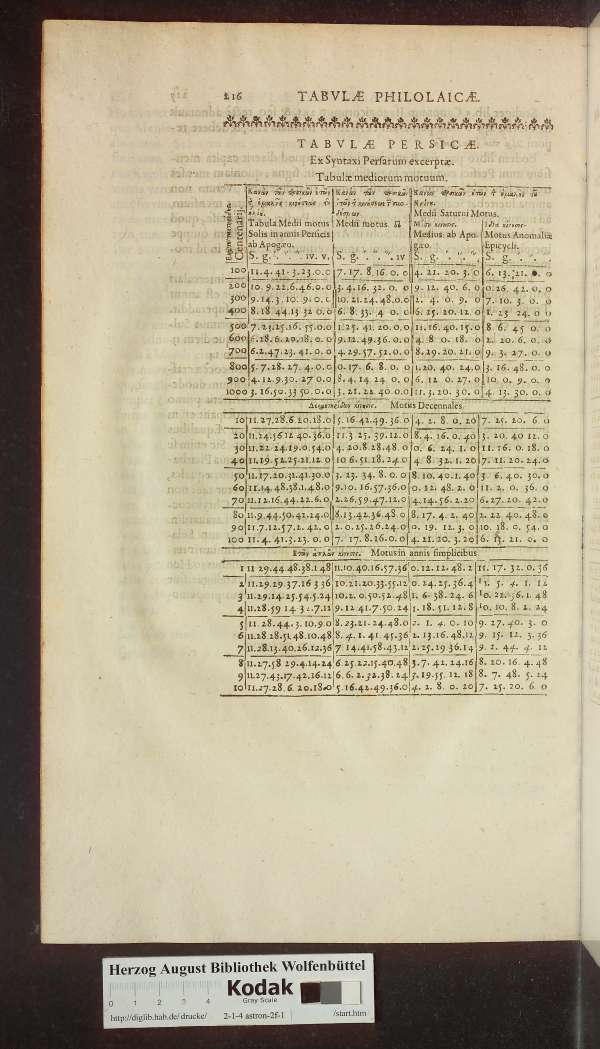 216 TABVLÆ PHILOLAICÆ.
TABVLÆ PERSICÆ.
Ex Syntaxi Persarum excerptæ.
Tabulæ mediorum motuum.
Medii Saturni Motus.
Tabula Medii motus Medii motus ☊
Solis in annis Persicis Medius. ab Apo- Motus Anomaliæ
ab Apogæo. gæo. Epicycli.
Centenarii
100 11.4.41.3.23.0.0 7.17.8.16.0.0 4.21.20.3.0 6.13.21.
200 10.9.22.6.46.0.0 3.4.16.32.0.0 9.12.40.6.0 0.26.42.0.0
300 9.14.3.10.9.0.0 10.21.24.48.0.0 2.4.0.9.0 7.10.3.0.0
400 8.18.44.13.32.0.0 6.8.33.4.0.0 6.25.20.12.0 1.23.24.0.0
500 7.23.25.16.55.0.0 1.25.41.20.0.0 11.16.40.15.0 8.6.45.0.0
600 6.28.6.20.18.0.0 9.12.49.36.0.0 4.8.0.18.0 2.20.6.0.0
700 6.2.47.23.41.0.0 4.29.57.52.0.0 8.29.20.21.0 9.3.27.0.0
800 5.7.28.27.4.0.0 0.17.6.8.0.0 1.20.40.24.0 3.16.48.0.0
900 4.12.9.30.27.0.0 8.4.14.24.0.0 6.12.0.27.0 10.0.9.0.0
1000 3.16.50.33.50.0.0 3.21.22.40.0.0 11.3.20.30.0 4.13.30.0.0
Motus Decennales.
10 11.27.28.6.20.18.0 5.16.42.49.36.0 4.2.8.0.20 7.25.20.6.0
20 11.24.56.12.40.36.0 11.3.25.39.12.0 8.4.16.0.40 3.20.40.12.0
30 11.22.24.19.0.54.0 4.20.8.28.48.0 0.6.24.1.0 11.16.0.18.0
40 11.19.52.25.21.12.0 10.6.51.18.24.0 4.8.32.1.20 7.11.20.24.0
50 11.17.20.31.41.30.0 3.23.34.8.0.0 8.10.40.1.40 3.6.40.30.0
60 11.14.48.38.1.48.0 9.10.16.57.36.0 0.12.48.2.0 11.2.0.36.0
70 11.12.16.44.22.6.0 2.26.59.47.12.0 4.14.56.2.20 6.27.20.42.0
80 11.9.44.50.42.24.0 8.13.42.36.48.0 8.17.4.2.40 2.22.40.48.0
90 11.7.12.57.2.42.0 2.0.25.26.24.0 0.19.12.3.0 10.18.0.54.0
100 11.4.41.3.23.0.0 7.17.8.16.0.0 4.21.20.3.20 6.
Motus in annis simplicibus
1 11.29.44.48.38.1.48 11.10.40.16.57.36 0.12.12.48.2 11.17.32.0.36
2 11.29.29.37.16.3.36 10.21.20.33.55.12 0.24.25.36.4 11.5.4.1.12
3 11.29.14.25.54.5.24 10.2.0.50.52.48 1.6.38.24.6 10.22.36.1.48
4 11.28.59.14.32.7.12 9.12.41.7.50.24 1.18.51.12.8 10.10.8.2.24
5 11.28.44.3.10.9.0 8.23.21.24.48.0 2.1.4.0.10 9.27.40.3.0
6 11.28.28.51.48.10.48 8.4.1.41.45.36 2.13.16.48.12 9.15.12.3.36
7 11.28.13.40.26.12.36 7.14.41.58.43.12 2.25.19.36.14 9.2.44.4.12
8 11.27.58.29.4.14.24 6.25.22.15.40.48 3.7.42.24.16 8.20.16.4.48
9 11.27.43.17.42.16.12 6.6.2.32.38.24 3.19.55.12.18 8.7.48.5.24
10 11.27.28.6.20.18.0 5.16.42.49.36.0 4.2.8.0.20 7.25.20.6.0
Herzog August Bibliothek Wolfenbüttel
0 1 2 3 4
Kodak
Gray Scale
http://diglib.hab.de/drucke/ 2-1-4 astron-2f-1 /start.htm